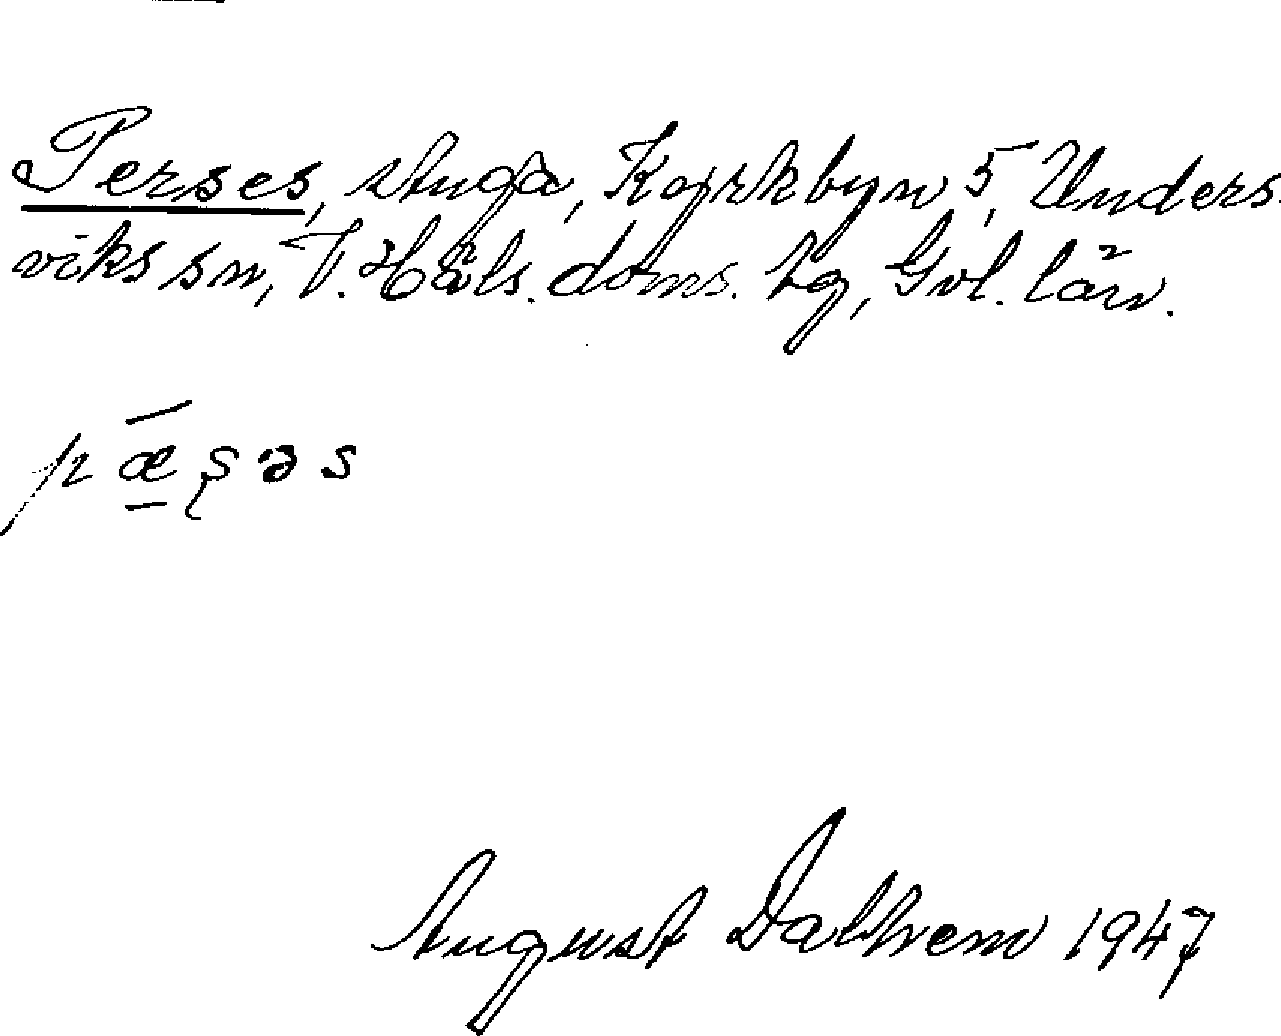 Perses, stuga, Kyrkbyn 5, Unders-
viks sn, V. Häls. doms. tg, Gvl. län.
pǣʂəs
August Dalhem 1947